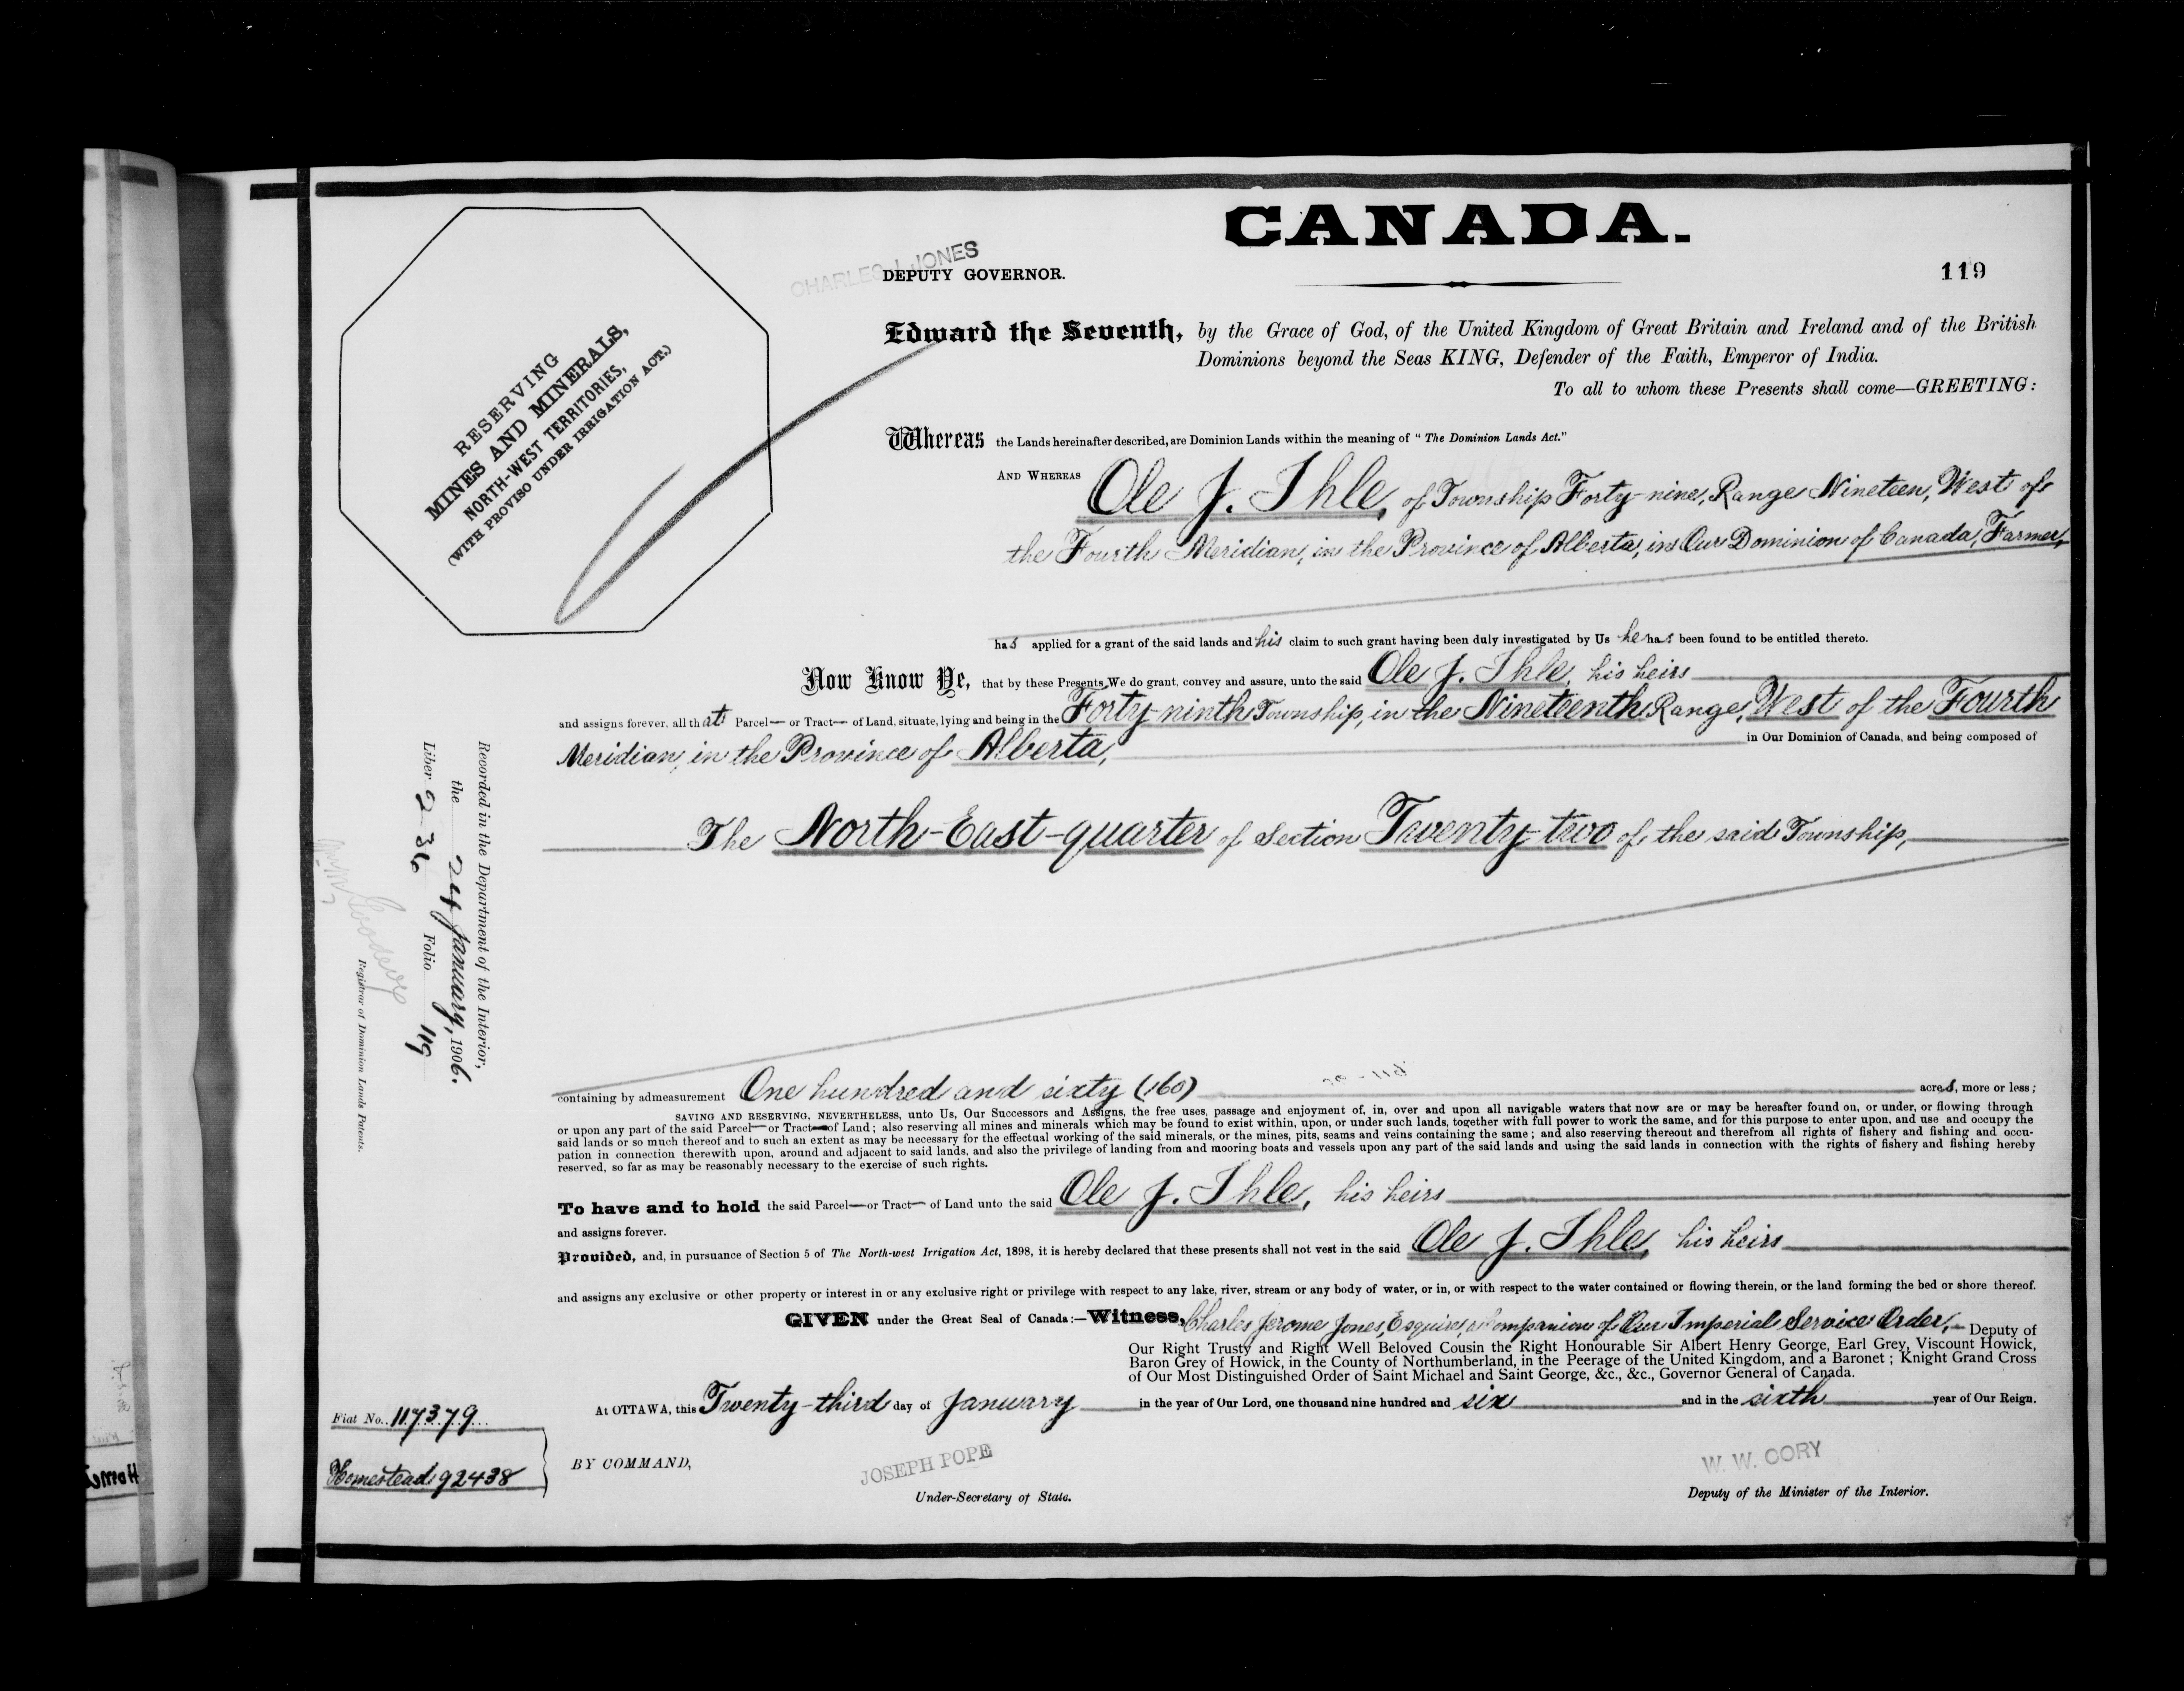 CANADA.
119
CHARLES J. JONES
DEPUTY GOVERNOR.
RESERVING
MINES AND MINERALS,
NORTH-WEST TERRITORIES,
(WITH PROVISO UNDER IRRIGATION ACT.)
Edward the Seventh, by the Grace of God, of the United Kingdom of Great Britain and Ireland and of the British
Dominions beyond the Seas KING, Defender of the Faith, Emperor of India.
To all to whom these Presents shall come—GREETING:
Whereas the Lands hereinafter described, are Dominion Lands within the meaning of "The Dominion Lands Act."
AND WHEREAS Ole J. Ihle, of Township Forty-nine, Range Nineteen, West of
the Fourth Meridian, in the Province of Alberta, in Our Dominion of Canada, Farmer,
has applied for a grant of the said lands and his claim to such grant having been duly investigated by Us he has been found to be entitled thereto.
Now Know Ye, that by these Presents We do grant, convey and assure, unto the said Ole J. Ihle, his heirs
and assigns forever. all that Parcel— or Tract— of Land, situate, lying and being in the Forty-ninth Township, in the Nineteenth Range, West of the Fourth
Meridian, in the Province of Alberta, in Our Dominion of Canada, and being composed of
The North-East-quarter of Section Twenty-two of the said Township,
containing by admeasurement One hundred and sixty (160) acres, more or less;
SAVING AND RESERVING, NEVERTHELESS, unto Us, Our Successors and Assigns, the free uses, passage and enjoyment of, in, over and upon all navigable waters that now are or may be hereafter found on, or under, or flowing through
or upon any part of the said Parcel—or Tract—of Land; also reserving all mines and minerals which may be found to exist within, upon, or under such lands, together with full power to work the same, and for this purpose to enter upon, and use and occupy the
said lands or so much thereof and to such an extent as may be necessary for the effectual working of the said minerals, or the mines, pits, seams and veins containing the same; and also reserving thereout and therefrom all rights of fishery and fishing and occu-
pation in connection therewith upon, around and adjacent to said lands, and also the privilege of landing from and mooring boats and vessels upon any part of the said lands and using the said lands in connection with the rights of fishery and fishing hereby
reserved, so far as may be reasonably necessary to the exercise of such rights.
To have and to hold the said Parcel—or Tract— of Land unto the said Ole J. Ihle, his heirs
and assigns forever.
Provided, and, in pursuance of Section 5 of The North-west Irrigation Act, 1898, it is hereby declared that these presents shall not vest in the said Ole J. Ihle, his heirs
and assigns any exclusive or other property or interest in or any exclusive right or privilege with respect to any lake, river, stream or any body of water, or in, or with respect to the water contained or flowing therein, or the land forming the bed or shore thereof.
GIVEN under the Great Seal of Canada:—Witness, Charles Jerome Jones, Esquire, a Companion of Our Imperial Service Order, Deputy of
Our Right Trusty and Right Well Beloved Cousin the Right Honourable Sir Albert Henry George, Earl Grey, Viscount Howick,
Baron Grey of Howick, in the County of Northumberland, in the Peerage of the United Kingdom, and a Baronet; Knight Grand Cross
of Our Most Distinguished Order of Saint Michael and Saint George, &c., &c., Governor General of Canada.
At OTTAWA, this Twenty-third day of January in the year of Our Lord, one thousand nine hundred and six and in the sixth year of Our Reign.
BY COMMAND,
JOSEPH POPE
Under-Secretary of State.
W. W. CORY
Deputy of the Minister of the Interior.
Fiat No. 117379
Homestead 92438
Recorded in the Department of the Interior,
the 24 January, 1906.
Liber 236 Folio 119
Registrar of Dominion Lands Patents.